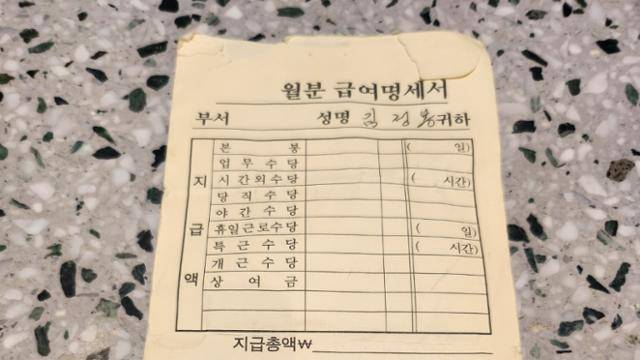 월분 급여명세서
부서 성명 김 정 봉 귀하
지급액
본 봉 ( 일)
업 무 수 당
시 간 외 수 당 ( 시간)
당 직 수 당
야 간 수 당
휴일근로수당 ( 일)
특 근 수 당 ( 시간)
개 근 수 당
상 여 금
지급총액₩